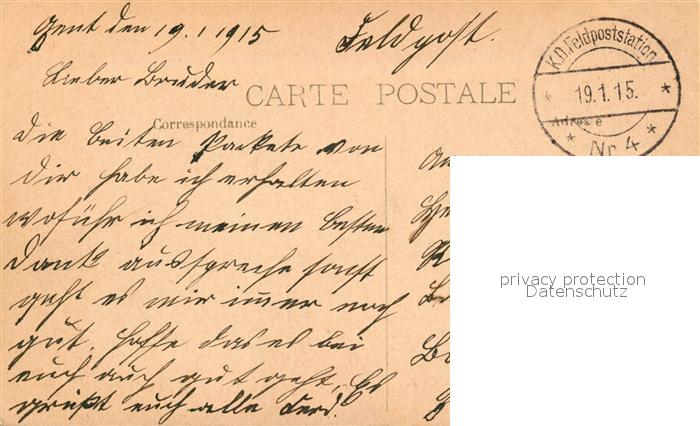 Gent den 19.1.1915 Feldpost.
Lieber Bruder
CARTE POSTALE
Correspondance
Adresse
K.D. Feldpoststation
19.1.15.
Nr 4
Die beiten Packete von
dir habe ich erhalten
woführ ich meinen besten
Dank ausspreche sonst
geht es mir immer noch
gut. hoffe das es bei
euch auch gut geht, Es
grüßt euch alle Ferd.
An
privacy protection
Datenschutz